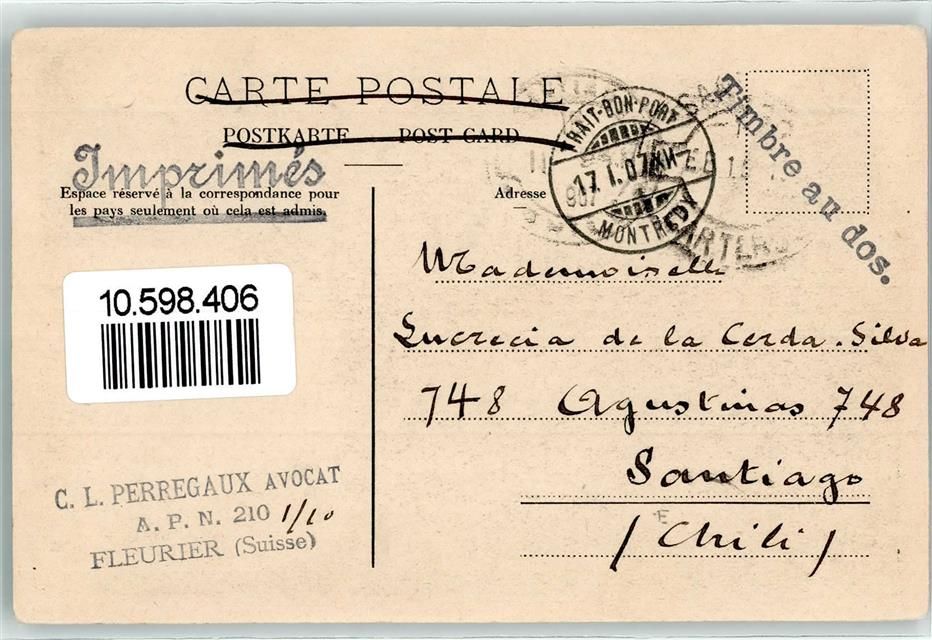 CARTE POSTALE
POSTKARTE POST CARD
Imprimés
Espace réservé à la correspondance pour
les pays seulement où cela est admis.
Adresse
Timbre au dos.
TRAIT-BON-PORT
17. I. 07
MONTREDY
Mademoiselle
Lucrecia de la Cerda. Silva
748 Agustinas 748
Santiago
(Chili)
10.598.406
C. L. PERREGAUX AVOCAT
A. P. N. 210 1/10
FLEURIER (Suisse)